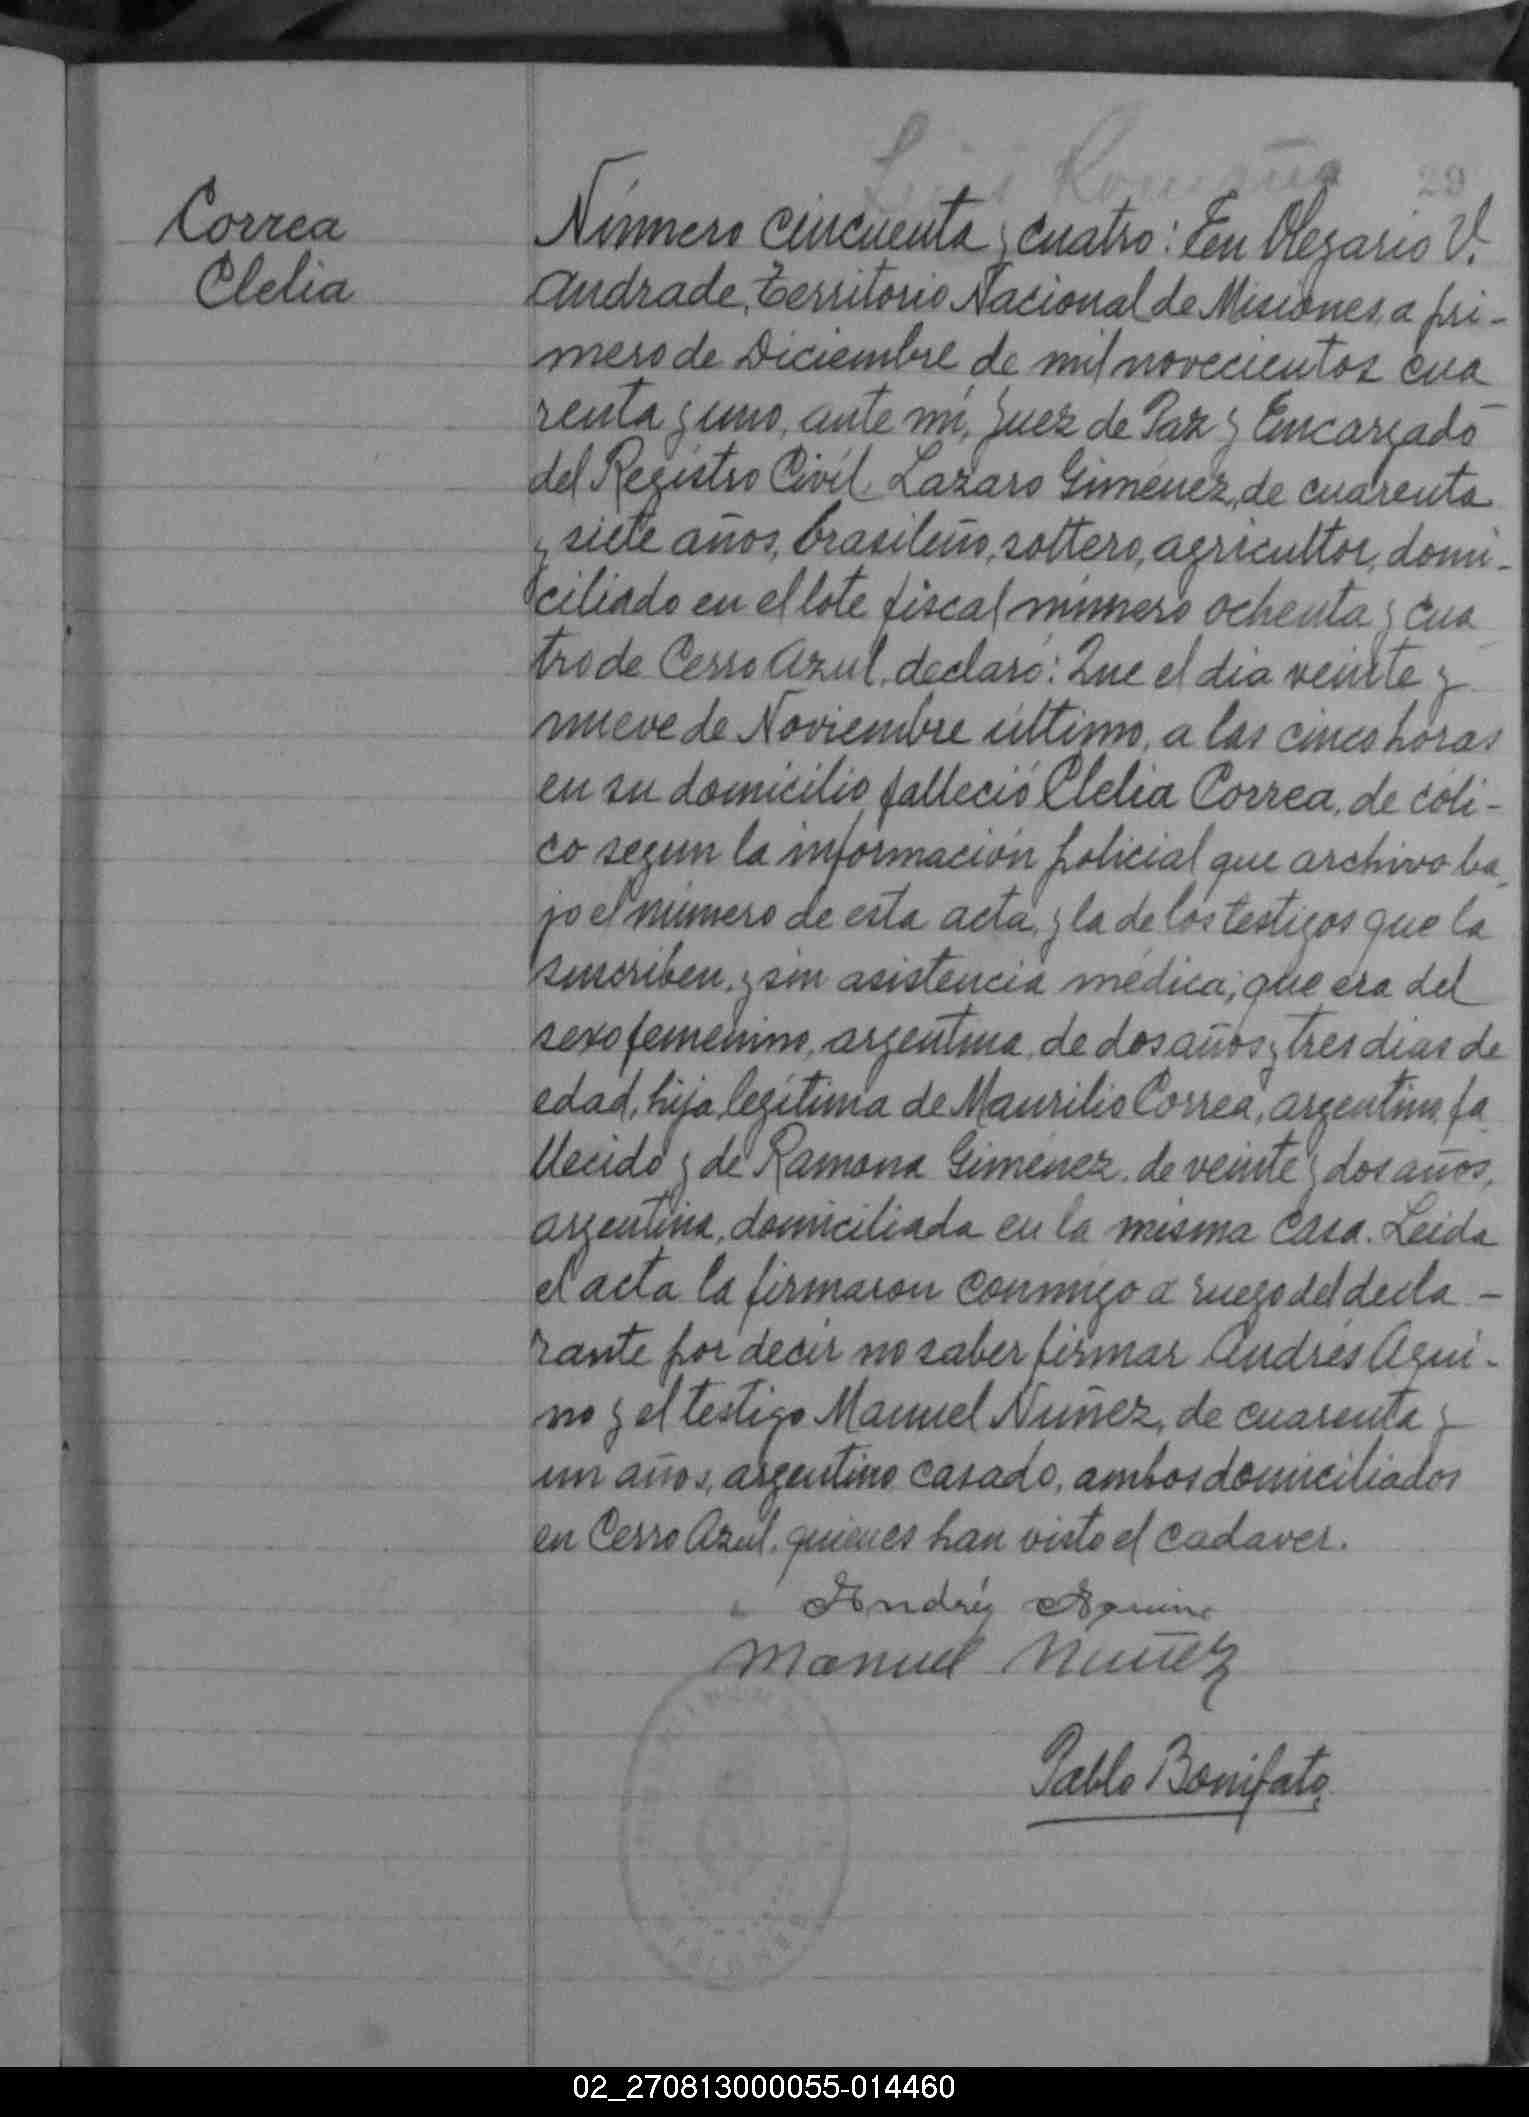 29
Correa
Clelia
Número cincuenta y cuatro: En Olegario V.
Andrade, Territorio Nacional de Misiones, a pri-
mero de Diciembre de mil novecientos cua
renta y uno, ante mí, Juez de Paz y Encargado
del Registro Civil, Lazaro Giménez, de cuarenta
y siete años, brasileño, soltero, agricultor, domi-
ciliado en el lote fiscal número ochenta y cua
tro de Cerro Azul, declaró: Que el dia veinte y
nueve de Noviembre último, a las cinco horas
en su domicilio, falleció Clelia Correa, de cóli-
co segun la información policial que archivo ba
jo el número de esta acta, y la de los testigos que la
suscriben, y sin asistencia médica; que era del
sexo femenino, argentina, de dos años y tres dias de
edad, hija legítima de Maurilio Correa, argentino, fa
llecido y de Ramona Giménez, de veinte y dos años,
argentina, domiciliada en la misma casa. Leida
el acta la firmaron conmigo a ruego del decla-
rante por decir no saber firmar Andrés Aqui-
no y el testigo Manuel Nuñez, de cuarenta y
un años, argentino, casado, ambos domiciliados
en Cerro Azul, quienes han visto el cadaver.
Andrés Aquino
Manuel Nuñez
Pablo Bonifato
02_270813000055-014460